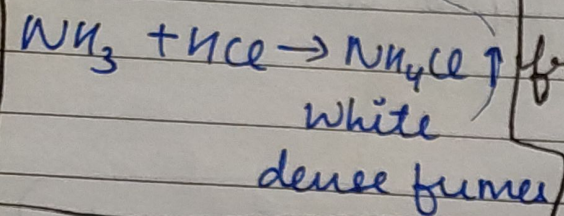 NH₃ + HCl → NH₄Cl ↑
White
dense fumes